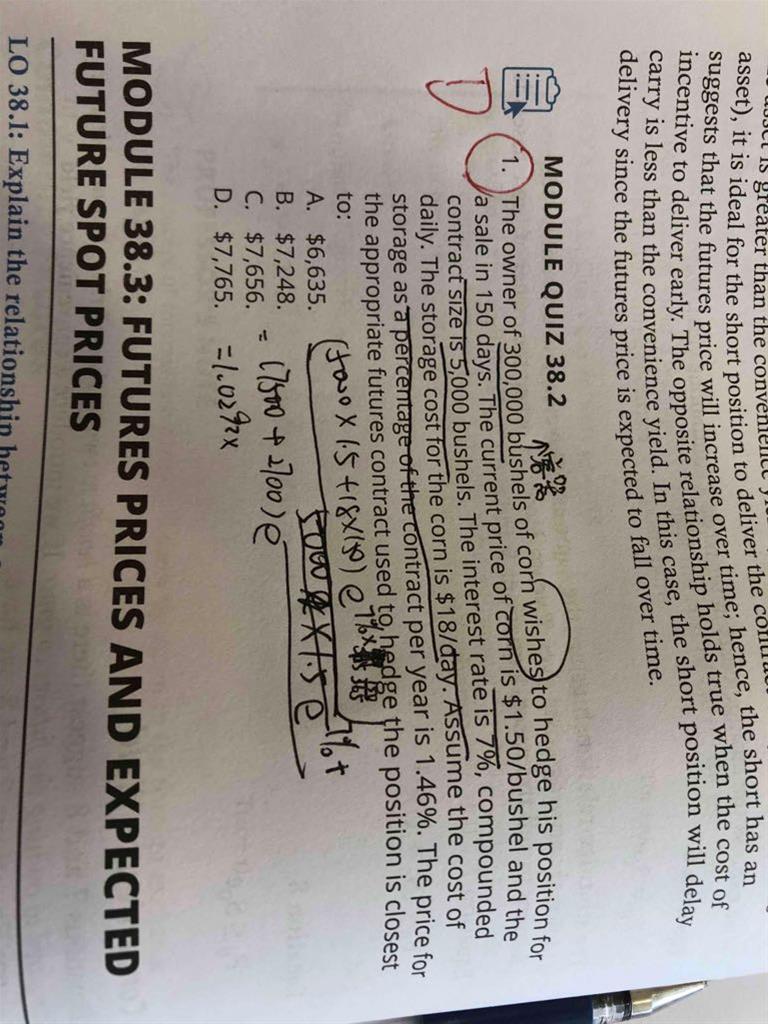 asset), it is ideal for the short position to deliver the contract
suggests that the futures price will increase over time; hence, the short has an
incentive to deliver early. The opposite relationship holds true when the cost of
carry is less than the convenience yield. In this case, the short position will delay
delivery since the futures price is expected to fall over time.
MODULE QUIZ 38.2
1. The owner of 300,000 bushels of corn wishes to hedge his position for
a sale in 150 days. The current price of corn is $1.50/bushel and the
contract size is 5,000 bushels. The interest rate is 7%, compounded
daily. The storage cost for the corn is $18/day. Assume the cost of
storage as a percentage of the contract per year is 1.46%. The price for
the appropriate futures contract used to hedge the position is closest
to:
A. $6,635.
B. $7,248.
C. $7,656.
D. $7,765.
(5000 × 1.5 + 18×150) e 7%×
5000 × 1.5 e 7%+
= (7500 + 2700) e
= 1.0292x
MODULE 38.3: FUTURES PRICES AND EXPECTED
FUTURE SPOT PRICES
LO 38.1: Explain the relationship between